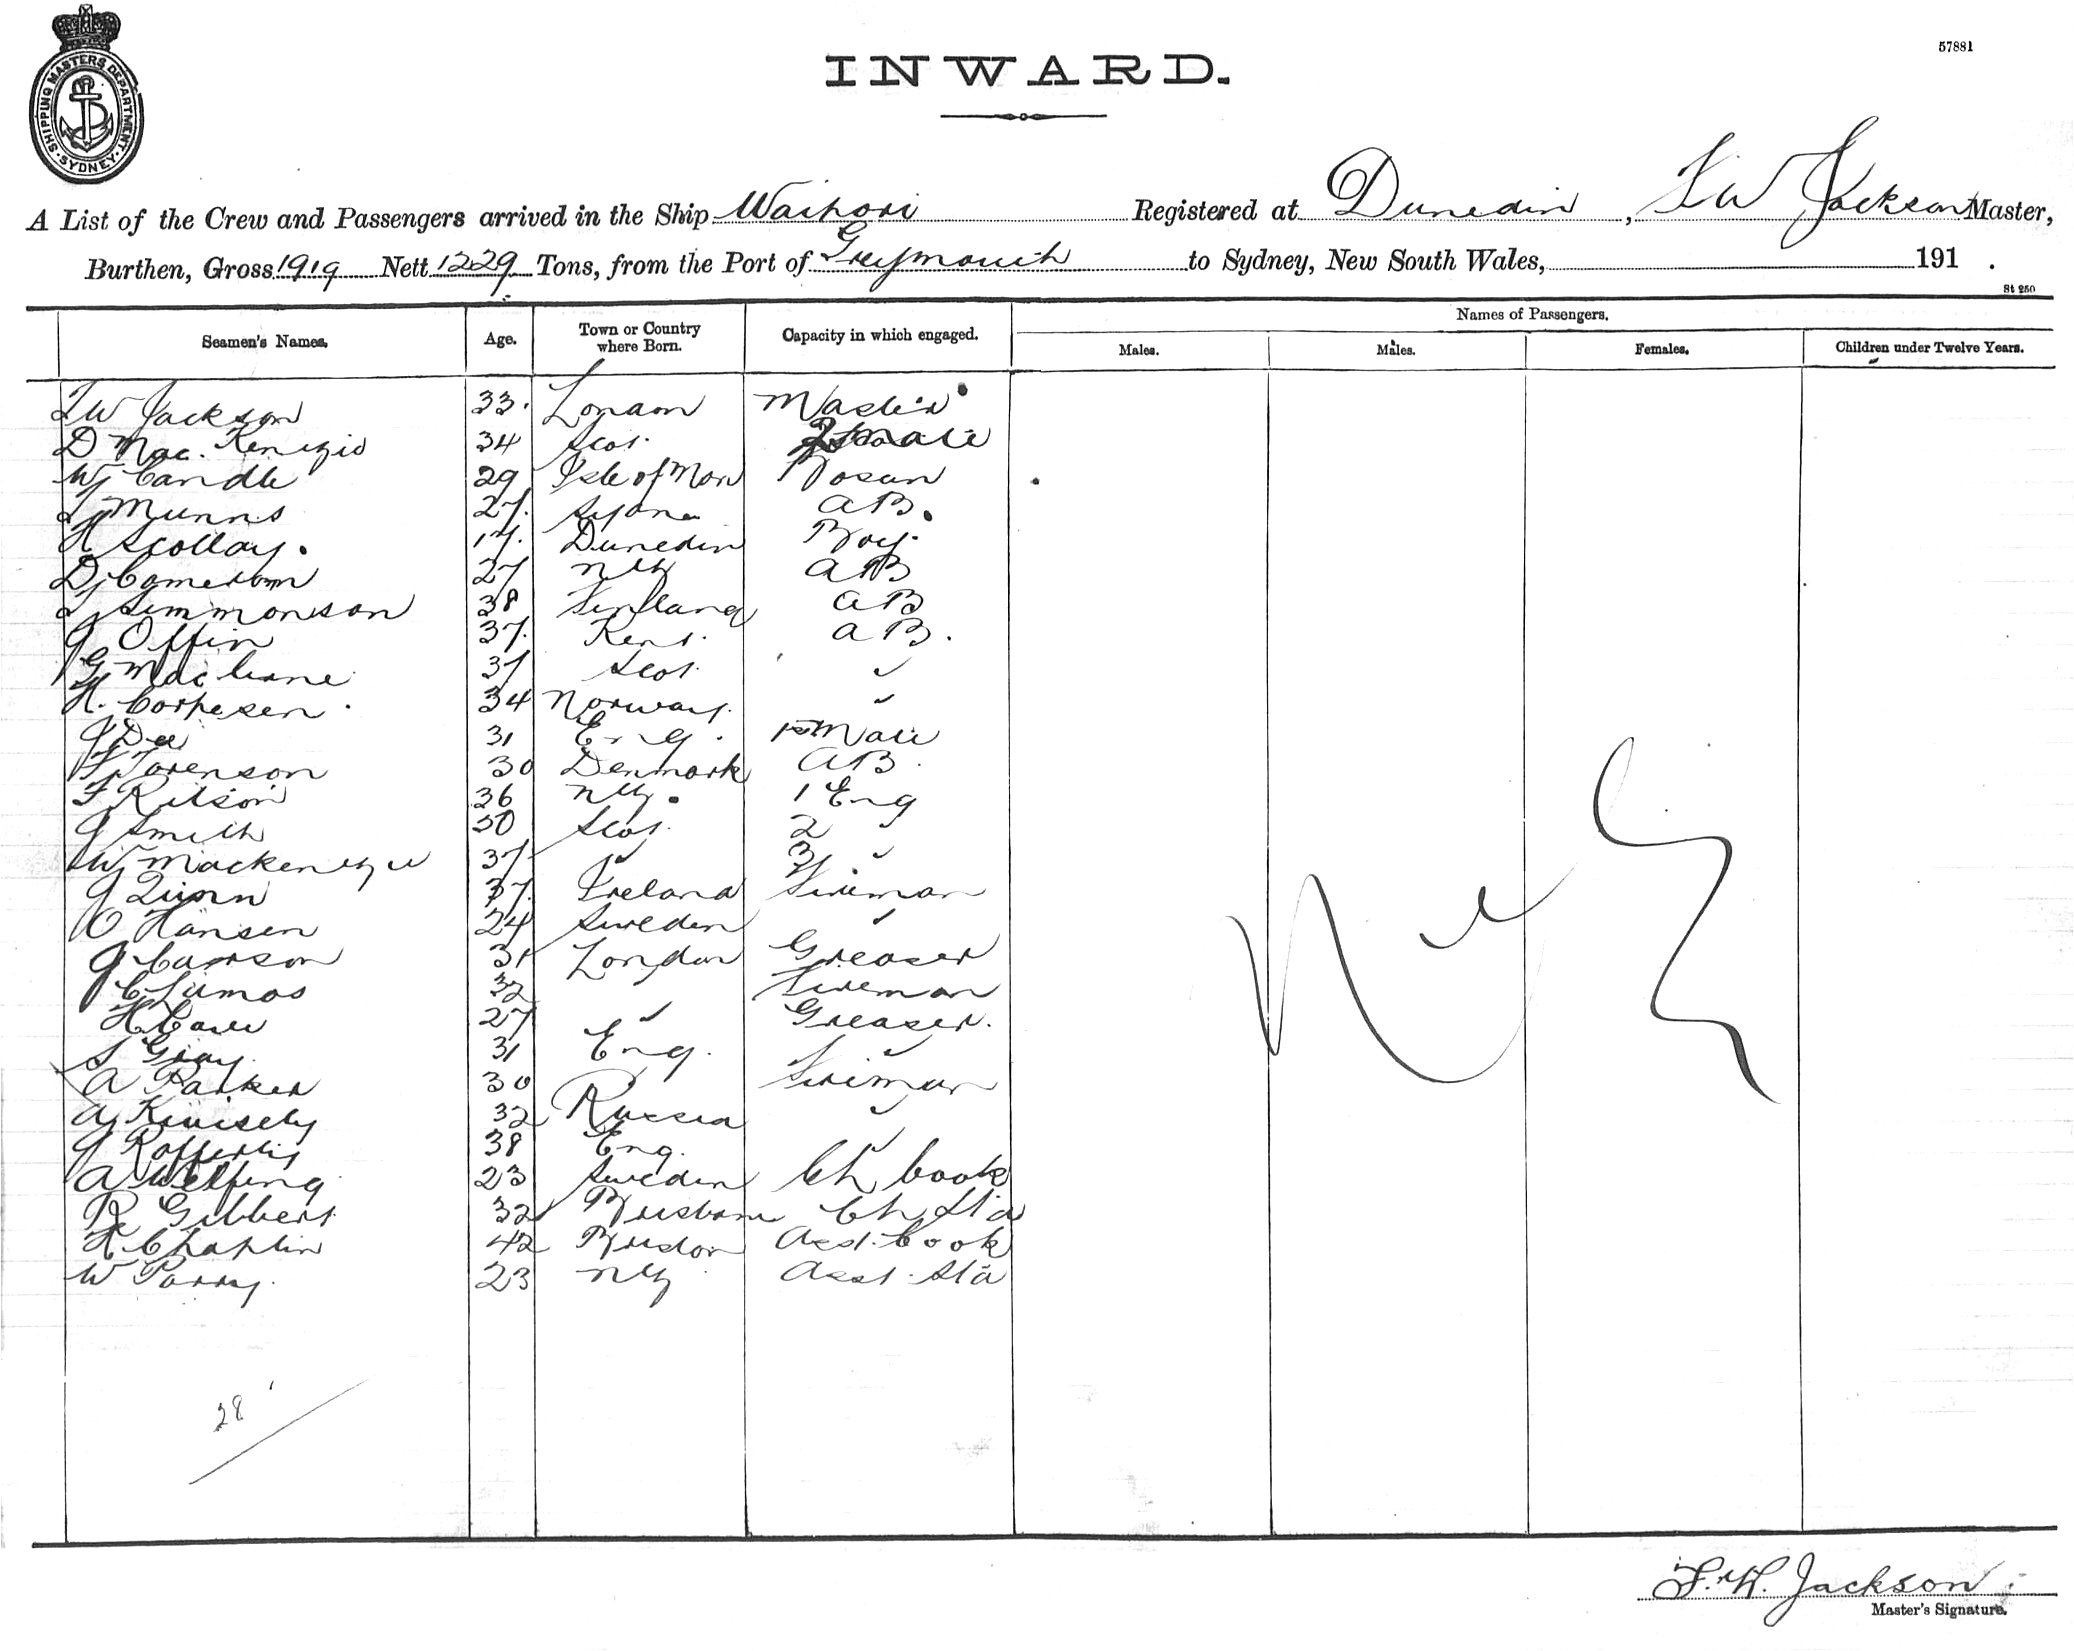 57881
SHIPPING MASTERS DEPARTMENT · SYDNEY ·
INWARD.
A List of the Crew and Passengers arrived in the Ship Waipori Registered at Dunedin, F W Jackson Master,
Burthen, Gross 1919 Nett 1229 Tons, from the Port of Greymouth to Sydney, New South Wales, 191 .
St 250
Seamen's Names. Age. Town or Country where Born. Capacity in which engaged. Names of Passengers.
Males. Males. Females. Children under Twelve Years.
F W Jackson 33. London Master
D Mac. Kenzie 34 Scot. 2 mate
W Candle 29 Isle of Man Bosun
Munns 27. AB.
H Scollay. 17. Dunedin Boy.
D Cameron 27 NZ AB
Simmonson 38 Finland AB
J Offin 37. Kent. AB.
G 37 Scot. "
H. 34 Norway. "
J Dee 31 Eng. 1st Mate
Sorenson 30 Denmark AB.
F Ritson 36 NZ. 1 Eng
J Smith 30 Scot. 2 "
W Mackenzie 37 " 3 "
J Quinn 37. Ireland Fireman
O Hansen 24 Sweden "
J Carrson 31 London Greaser
C 32 Fireman
H 27 " Greaser.
S Gray. 31 Eng. "
A Parker 30 Fireman
A 32 Russia "
J Rafferty 38 Eng. "
A 23 Sweden Ch Cook
R Gibbert 32 Brisbane Ch Std
H Chaplin 42 Asst. Cook
W Parry. 23 NZ Asst. Std
Nil
28
F. W. Jackson
Master's Signature.